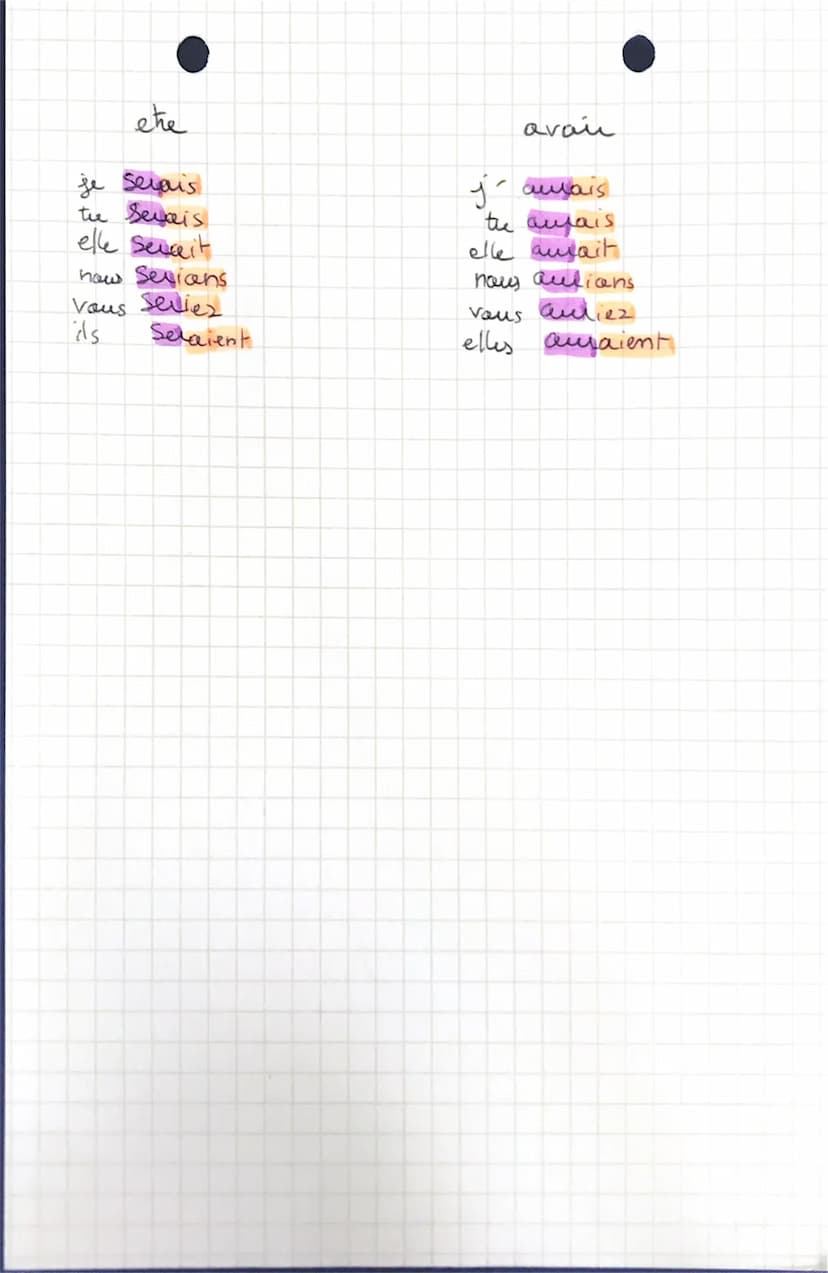 etre
je serais
tu serais
elle serait
nous serions
vous seriez
ils seraient
avoir
j' aurais
tu aurais
elle aurait
nous aurions
vous auriez
elles auraient